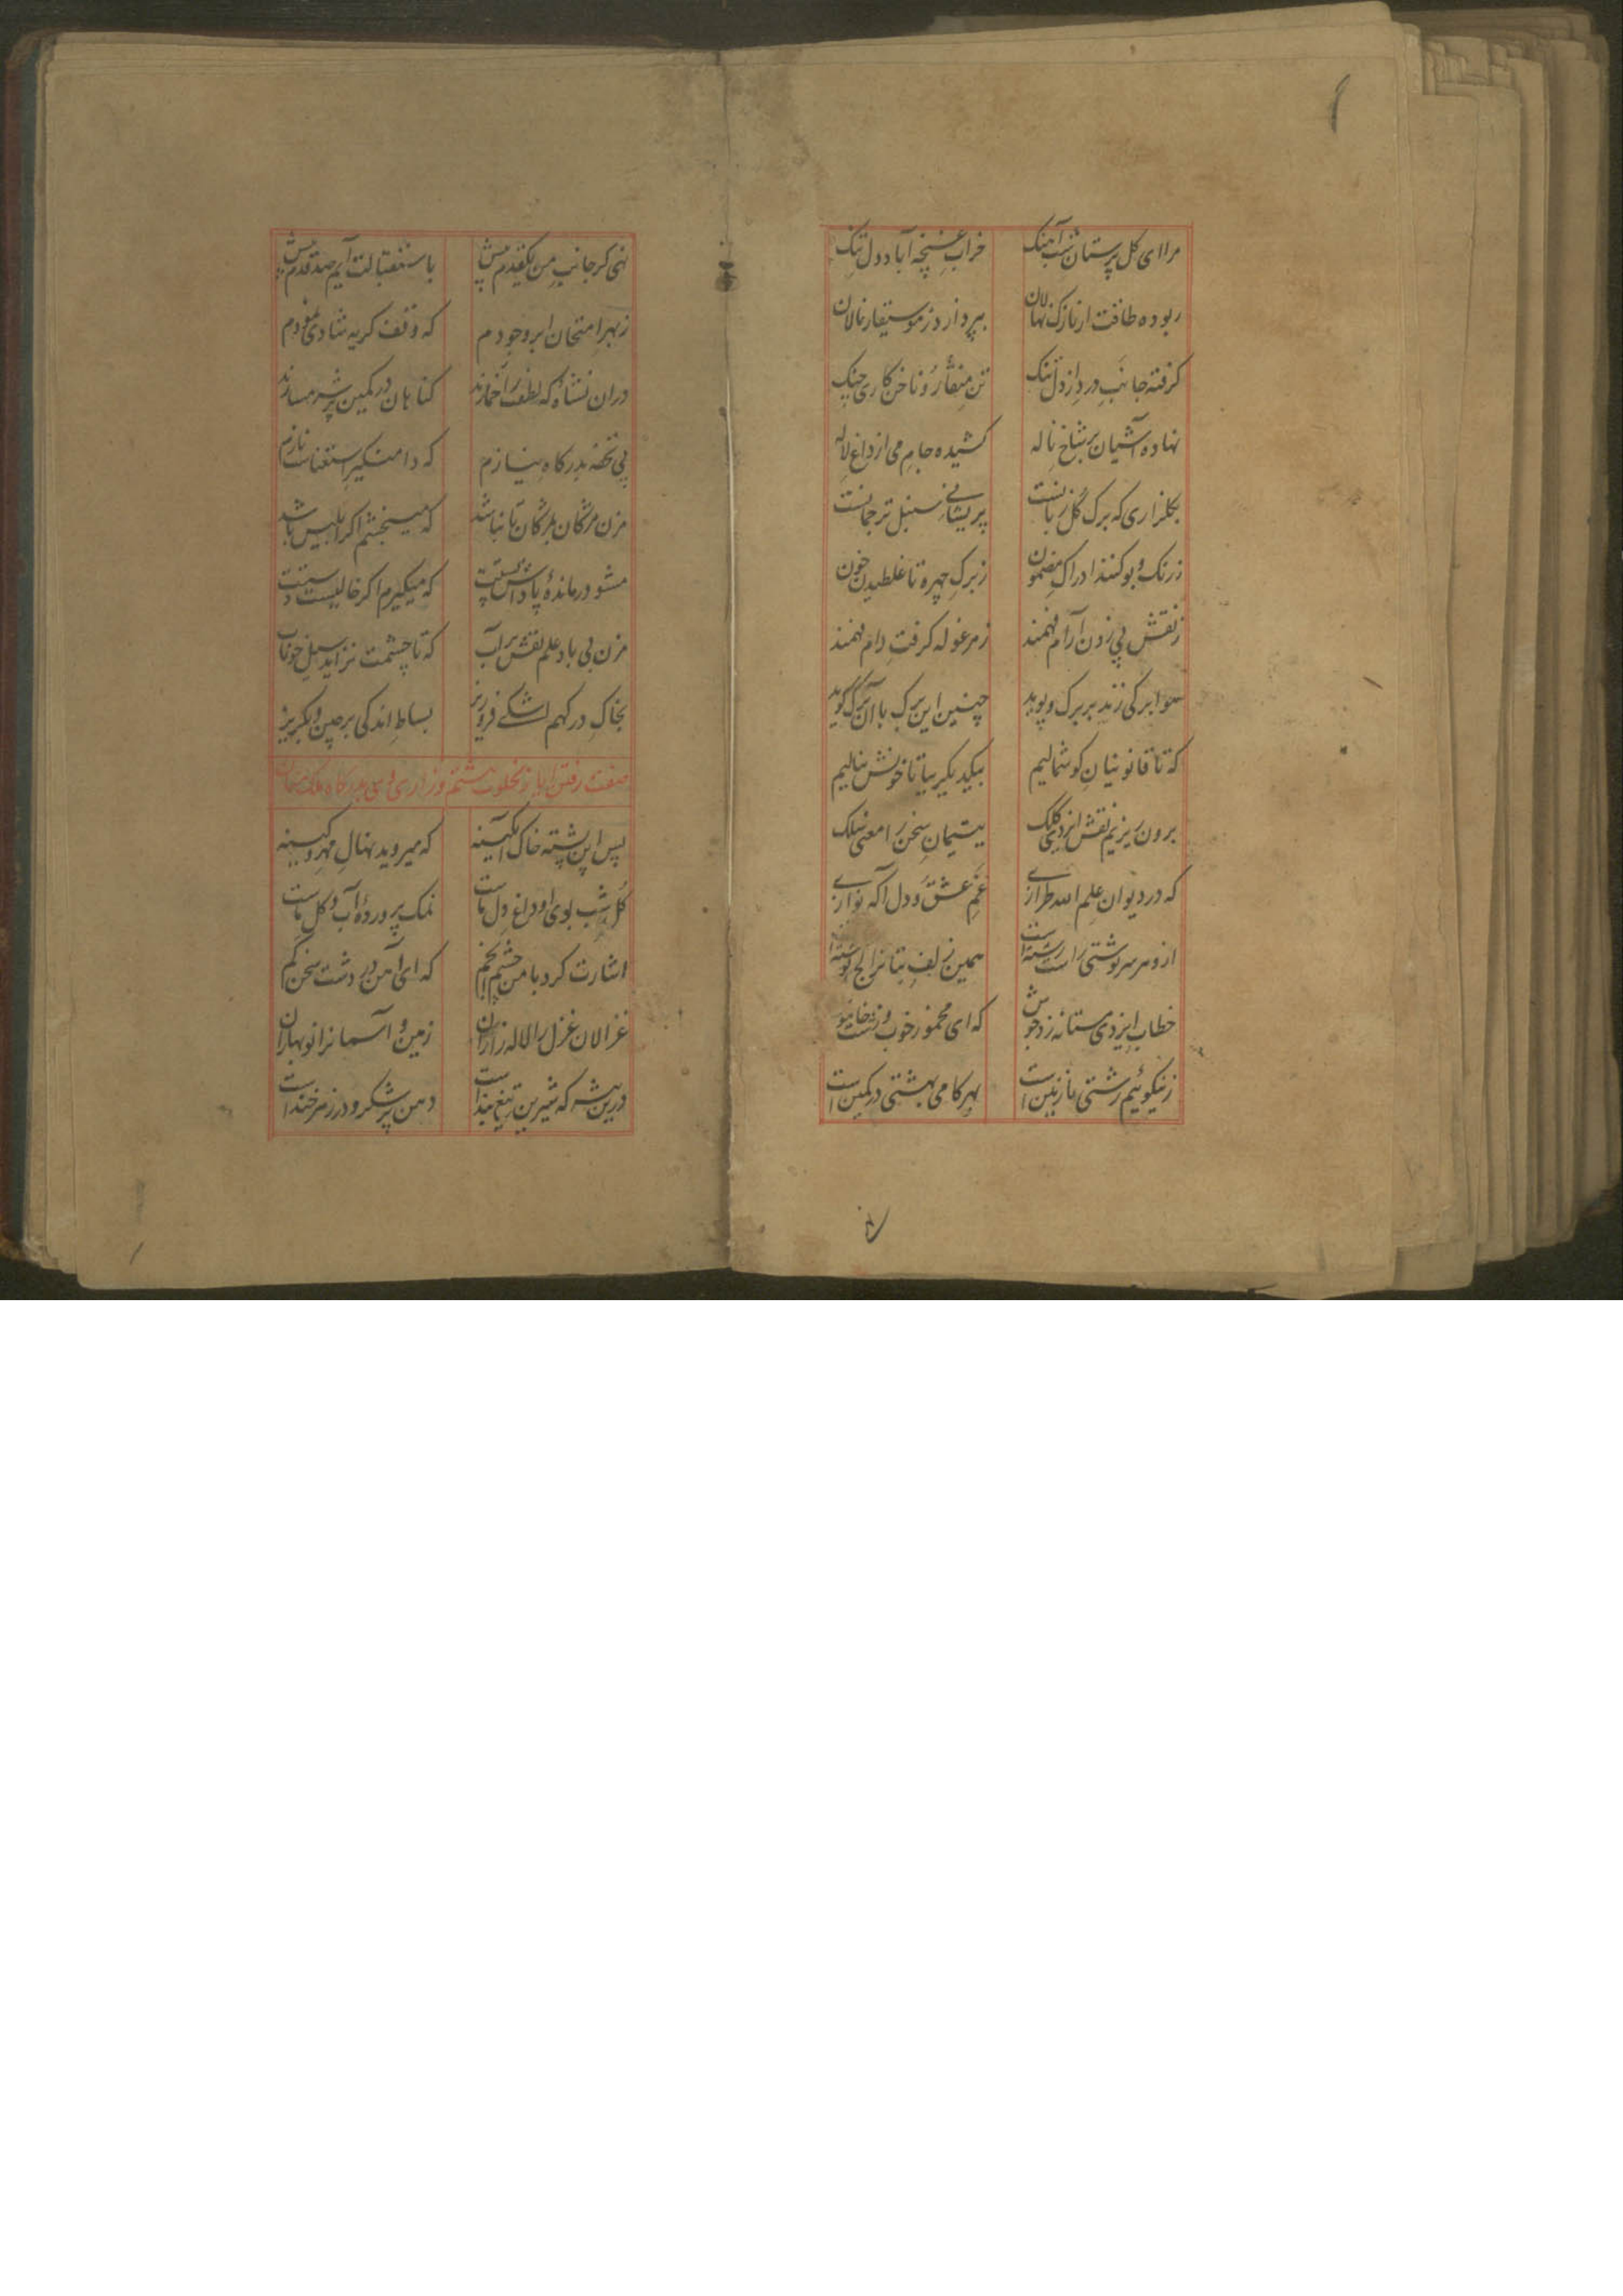 مرا ای گل پرستان شب آهنگ خراب غنچه آباد دل تنگ
ربوده طاقت از نازک نهالان بپردازد ز موسیقار نالان
گرفته جانب درد از دل تنگ تن منقار و ناخن کاری چنگ
نهاده آشیان بر شاخ ناله کشیده جام می از داغ لاله
بگلزاری که برگ گل زبانست پریشانی سنبل ترجمانست
ز رنگ و بو کنند ادراک مضمون ز برگ چهره تا غلطیدن خون
ز نقش پی زدن آرام فهمند ز مرغوله گرفت دام فهمند
هوا برگی زند بر برگ و پوید چنین این برگ با آن برگ گوید
که تا قانونیان گوشمالیم بیکدیگر بیا تا خوش بنالیم
برون ریزیم نقش ایزدی کلک یتیمان سخن را معنی سلک
که در دیوان علم الله طرازی غم عشق و دل آگه نوازی
ازو هر سرنوشتی راست رشته است همین زلف بتانرا کج نوشته است
خطاب ایزدی مستانه زد جوش که ای مخمور خوب و زشت خاموش
ز نیکوئیم زشتی نازنین است بهر کامی بهشتی در کمین است
نهی گر جانب من یکقدم پیش باستقبالت آیم صد قدم بیش
ز بهر امتحان ابر وجودم که وقف گریه شادی نمودم
دران نشاه که لطف را خمارند گناهان در کمین شرمسارند
پی تحفه بدرگاه نیازم که دامنگیر استغناست نازم
مزن مژگان بمژگان تا نباشد که میبخشم اگر ابلیس باشد
مشو درمانده پاداش پستت که میگیرم اگر خالیست دستت
مزن بی یاد علم نقش بر آب که تا چشمت نزاید سیل خوناب
بخاک درگهم اشکی فروریز بساط اندکی برچین و بگریز
صفت رفتن ایاز بخلوت هشتم و زاری وی بدرگاه ملک منان
پس این پشته خاک آبگینه که میروید نهال مهر و کینه
گل شب بوی او داغ دل ماست نمک پرورده آب و گل ماست
اشارت کرد با من چشم انجم که ای آهن در دشت سخن گم
غزالان غزل را لاله زاران زمین و آسمانرا نوبهاران
درین بیشه که شیرین تیغ بند است دهن پر شکر و در زهرخند است